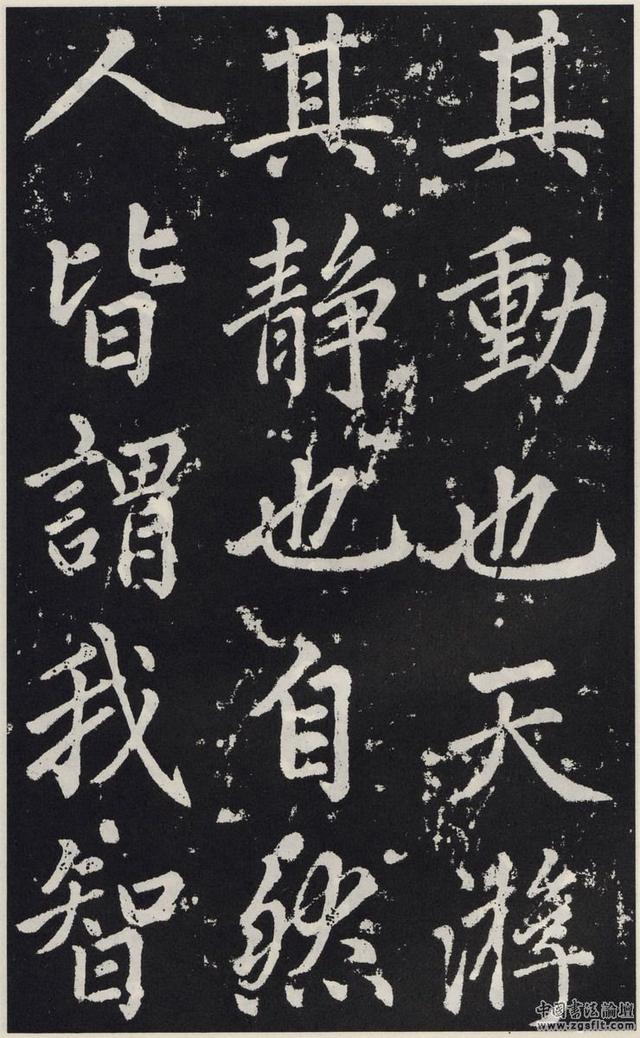 其動也天
其静也自然
人皆謂我智
中国書法論壇
www.zgsflt.com